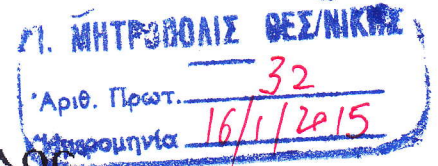 Π. ΜΗΤΡΟΠΟΛΙΣ ΘΕΣ/ΝΙΚΗΣ
Ἀριθ. Πρωτ. 32
Ἡμερομηνία 16/1/2015